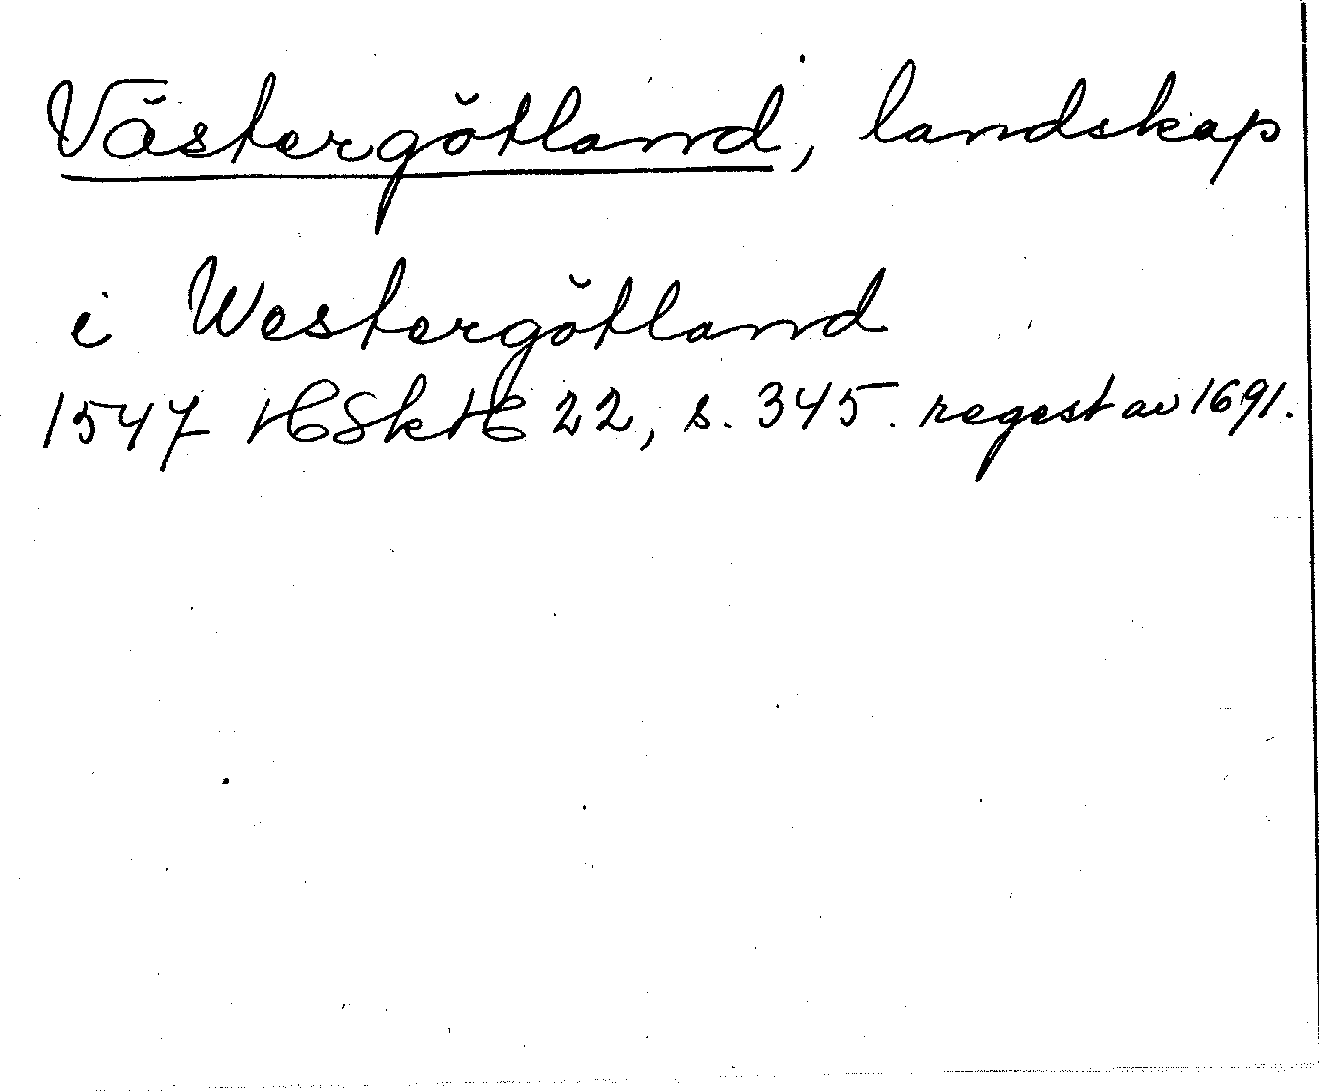 Västergötland, landskap
i Westergötland
1547 HSkH 22, s. 345. regest av 1691.